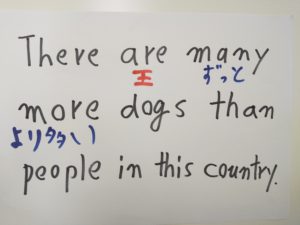 There are many
王 ずっと
more dogs than
より多い
people in this country.